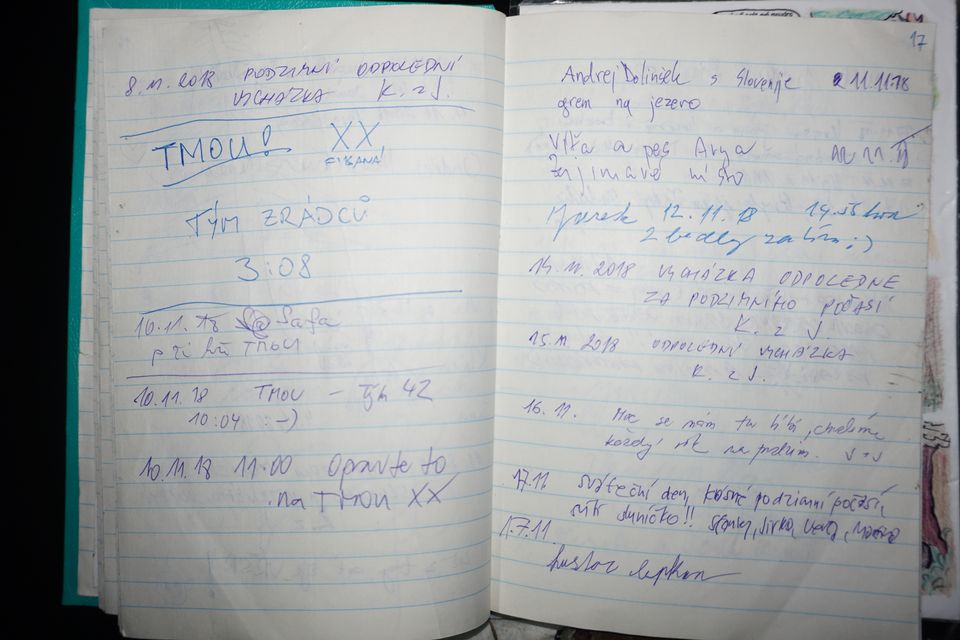 8.11.2018 PODZIMNÍ ODPOLEDNÍ
VYCHÁZKA K. z J.
TMOU! XX
TÝM ZRÁDCŮ
3:08
10.11.18 Safa
při hře TMOU
10.11.18 TMOU – Tým 42
10:04 :-)
10.11.18 11:00 Opravte to
na TMOU XX
17
Andrej Dolinšek s Slovenije 11.11.18
grem na jezero
Víťa a pes Arya
Zajímavé místo
Marek 12.11.18
2 bedly zatím ;)
14.11.2018 VYCHÁZKA ODPOLEDNE
ZA PODZIMNÍHO POČASÍ
K. z J
15.11 2018 ODPOLEDNÍ VYCHÁZKA
K. z J.
16.11. Moc se nám tu líbí, chodíme
každý rok na podzim. J + J
17.11 sváteční den, krásné podzimní počasí,
sluníčko!!
17.11.